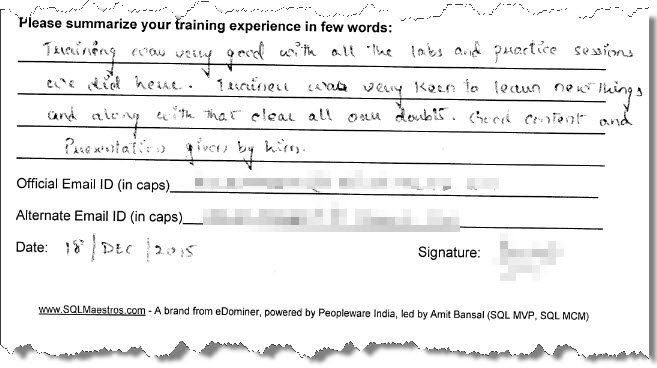 Please summarize your training experience in few words:
Training was very good with all the labs and practice sessions
we did here. Trainer was very keen to learn new things
and along with that clear all our doubts. Good content and
Presentation given by him.
Official Email ID (in caps)
Alternate Email ID (in caps)
Date: 18/DEC/2015 Signature:
www.SQLMaestros.com - A brand from eDominer, powered by Peopleware India, led by Amit Bansal (SQL MVP, SQL MCM)